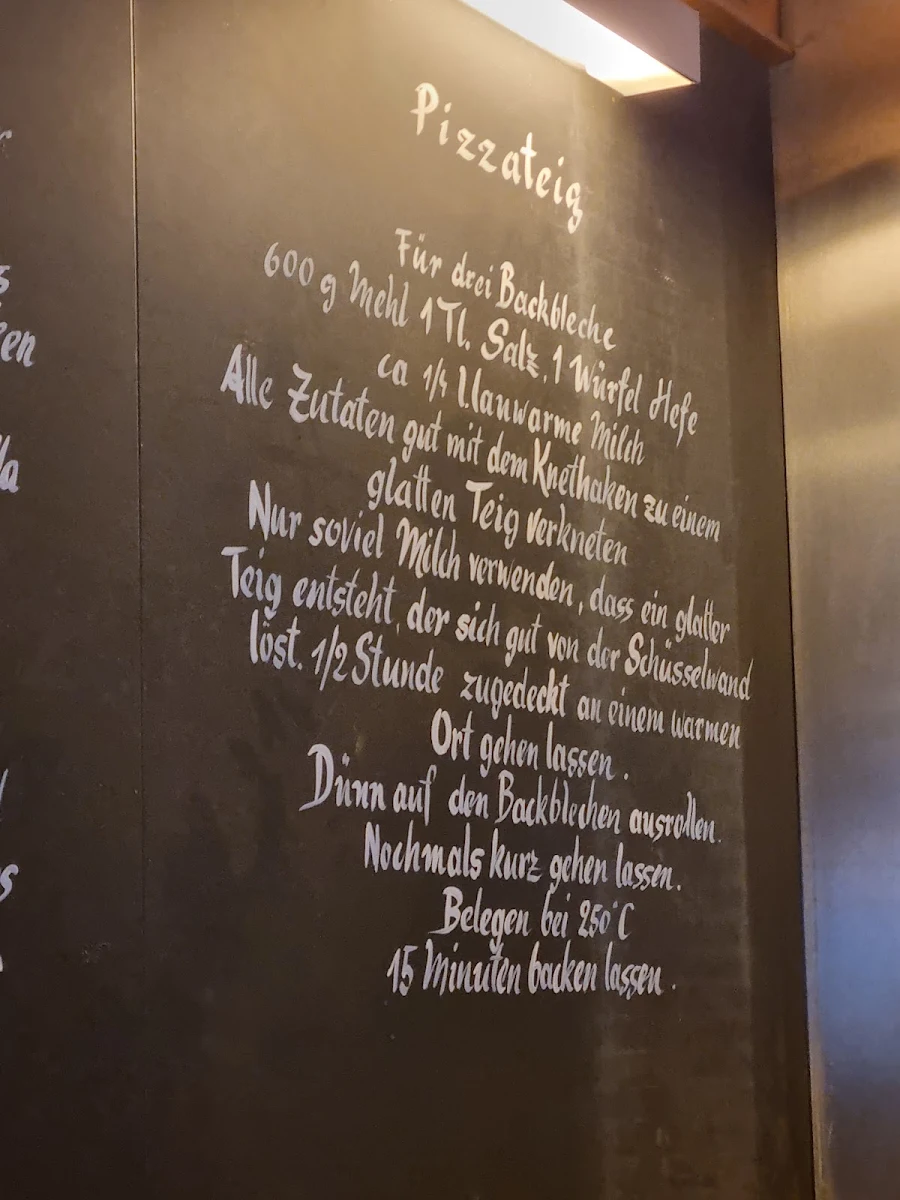 Pizzateig
Für drei Backbleche
600 g Mehl 1 Tl. Salz, 1 Würfel Hefe
ca 1/4 l lauwarme Milch
Alle Zutaten gut mit dem Knethaken zu einem
glatten Teig verkneten
Nur soviel Milch verwenden, dass ein glatter
Teig entsteht, der sich gut von der Schüsselwand
löst. 1/2 Stunde zugedeckt an einem warmen
Ort gehen lassen.
Dünn auf den Backblechen ausrollen.
Nochmals kurz gehen lassen.
Belegen bei 250°C
15 Minuten backen lassen.